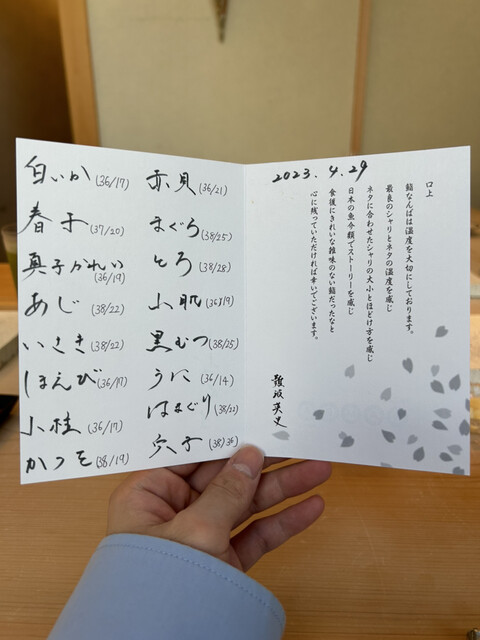 白いか (36/17)
春子 (37/20)
真子かれい
(36/19)
あじ (38/22)
いさき (38/22)
しまえび (36/17)
小柱 (36/17)
かつを (38/19)
赤貝 (36/21)
まぐろ (38/25)
とろ (38/28)
小肌 (36/19)
黒むつ (38/25)
うに (36/14)
はまぐり (38/22)
穴子 (38/36)
2023.4.29
口上
鮨なんばは温度を大切にしております。
最良のシャリとネタの温度を感じ
ネタに合わせたシャリの大小とほどけ方を感じ
日本の魚介類でストーリーを感じ
食後にきれいな雑味のない鮨だったなと
心に残っていただければ幸いでございます。
難波英史